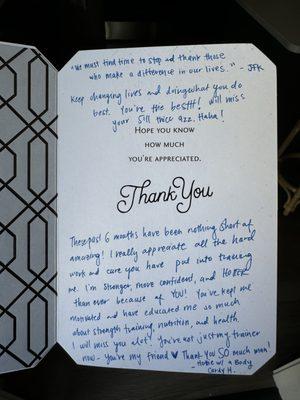 "We must find time to stop and thank those
who make a difference in our lives." - JFK
Keep changing lives and doing what you do
best. You're the bestttt! Will miss
your Sill thicc azz. Haha!
HOPE YOU KNOW
HOW MUCH
YOU'RE APPRECIATED.
Thank You
These past 6 months have been nothing short of
amazing! I really appreciate all the hard
work and care you have put into training
me. I'm stronger, more confident, and HOTTER
than ever because of YOU! You've kept me
motivated and have educated me so much
about strength training, nutrition, and health
I will miss you alot! You're not just my trainer
now - You're my friend ♥ Thank you SO much man!
- Hottie w/ a Body
Cardy H.